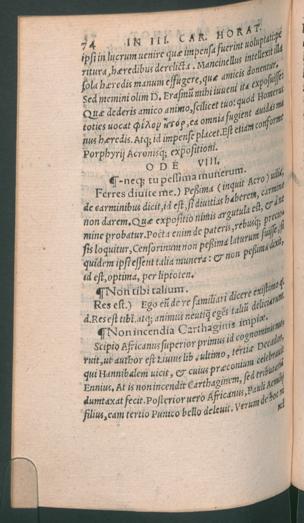 74 IN III. CAR. HORAT.
ipsi in lucrum uenire quæ impensa fuerint uoluptati pe
ritura, hæredibus derelicta. Mancinellus intellexit illa
sola hæredis manum effugere, quæ amicis donentur.
Sed memini olim D. Erasmū mihi iuueni ita exposuisse:
Quæ dederis amico animo, scilicet tuo: quod Homerus
toties uocat φίλον ἦτορ, ea omnia fugient auidas ma
nus hæredis. Atq; id impense placet. Est etiam conforme
Porphyrij Acronisq; expositioni.
ODE VIII.
¶ -neq; tu pessima munerum.
Ferres diuite me.) Pessima (inquit Acro) uilia,
de carminibus dicit, id est, si diuitias haberem, carmina
non darem. Quæ expositio nimis argutula est, & à no
mine probatur. Poëta enim de pateris, rebusq́; precio
sis loquitur, Censorinum non pessima laturum fuisse, si
quidem ipsi essent talia munera: & non pessima dixit,
id est, optima, per liptoten.
¶ Non tibi talium.
Res est.) Ego de re familiari dicere existimo
d. Res est tibi. atq; animus neutiq́ egēs taliū delitiarum.
¶ Non incendia Carthaginis impiæ.
Scipio Africanus superior primus id cognominis me
ruit, ut author est Liuius lib. ultimo, tertiæ Decadis,
qui Hannibalem uicit, & cuius præconium celebrauit
Ennius. At is non incendit Carthaginem, sed tributariā
dumtaxat fecit. Posterior uero Africanus, Pauli Aemilij
filius, eam tertio Punico bello deleuit. Verum de hoc